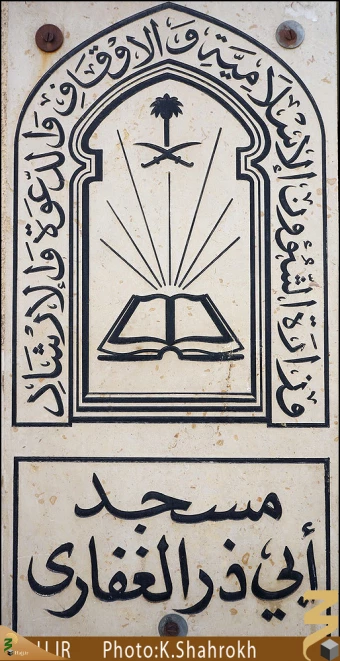 وزارة الشؤون الإسلامية والاوقاف والدعوة والإرشاد
مسجد
أبي ذر الغفارى
Photo:K.Shahrokh